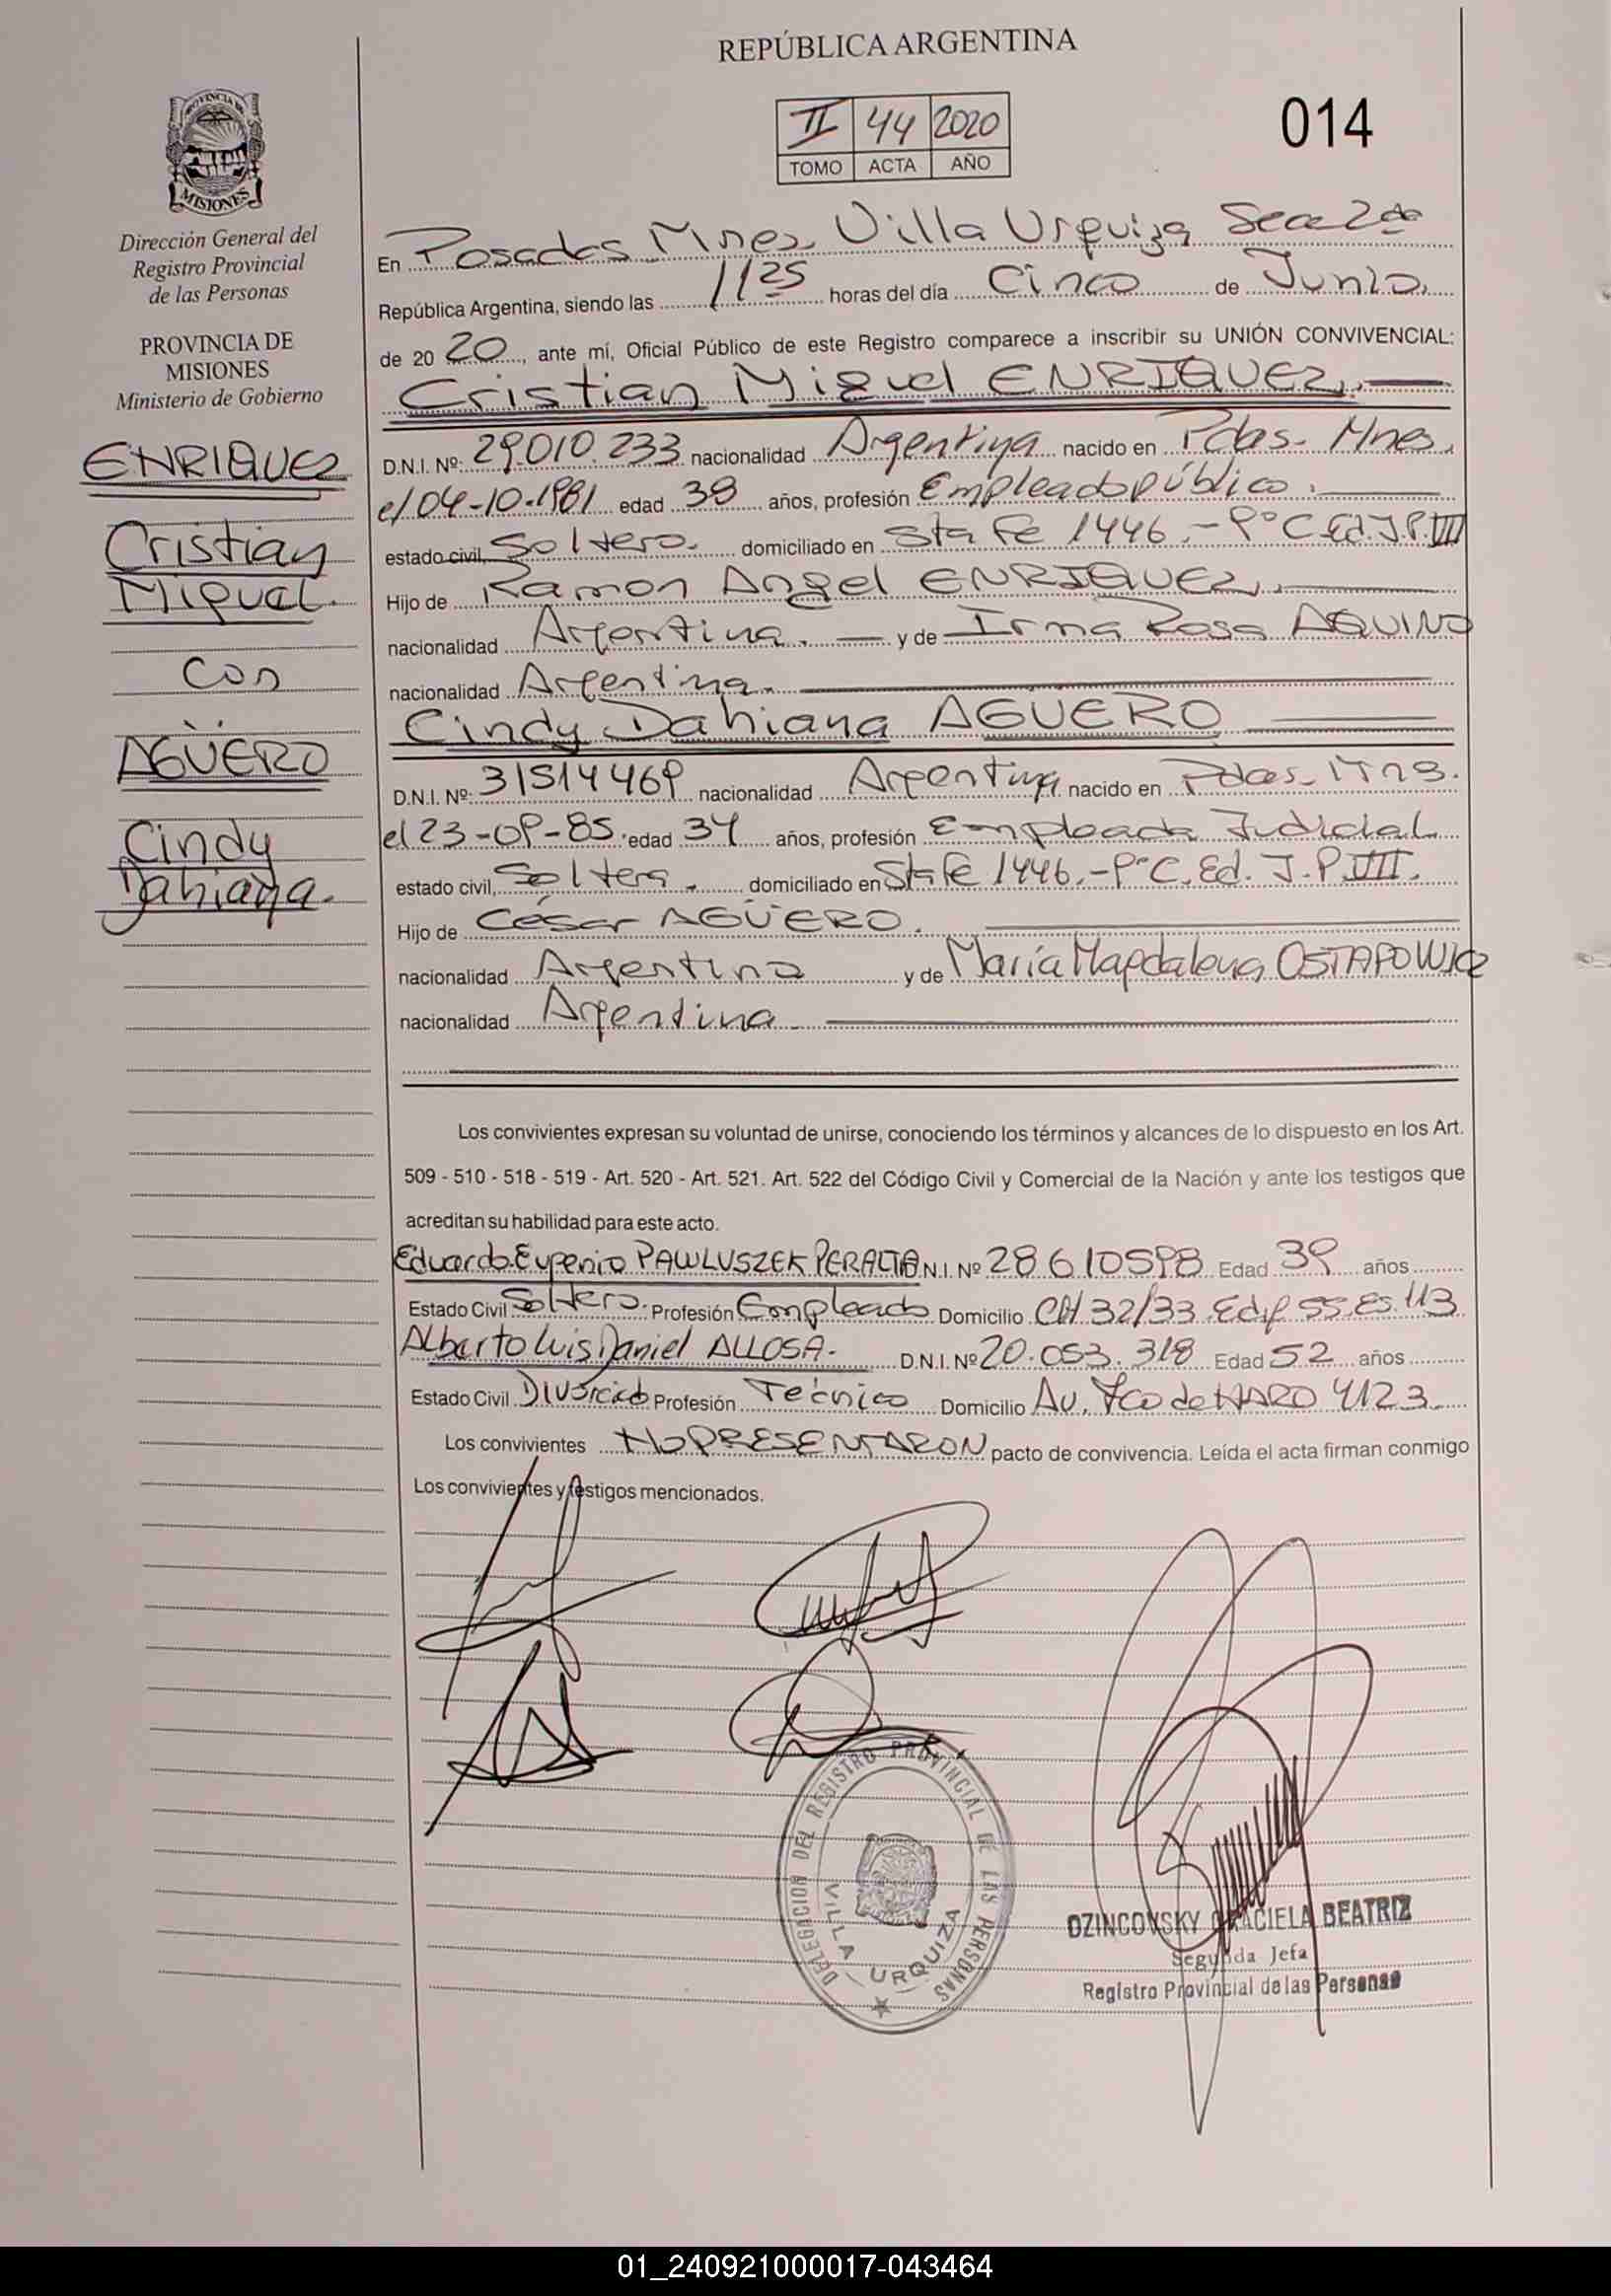 REPÚBLICA ARGENTINA
II 44 2020
TOMO ACTA AÑO
014
PROVINCIA DE
MISIONES
Dirección General del
Registro Provincial
de las Personas
PROVINCIA DE
MISIONES
Ministerio de Gobierno
ENRIQUEZ
Cristian
Miguel.
con
AGÜERO
Cindy
Dahiana.
En Posadas Mnes, Villa Urquiza Secc 2da
República Argentina, siendo las 1125 horas del día Cinco de Junio,
de 20 20, ante mí, Oficial Público de este Registro comparece a inscribir su UNIÓN CONVIVENCIAL:
Cristian Miguel ENRIQUEZ,
D.N.I. Nº: 29.010.233 nacionalidad Argentina nacido en Pdas. Mnes,
el 04-10-1981 edad 38 años, profesión Empleado público.
estado civil, Soltero. domiciliado en Sta Fe 1446.- PºC. Ed. J.P. III
Hijo de Ramon Angel ENRIQUEZ,
nacionalidad Argentina. y de Irma Rosa AQUINO
nacionalidad Argentina.
Cindy Dahiana AGUERO
D.N.I. Nº: 31514469 nacionalidad Argentina nacido en Pdas.
el 23-09-85. edad 34 años, profesión Empleada Judicial
estado civil, Soltera. domiciliado en Sta Fe 1446.- PºC. Ed. J.P. III.
Hijo de César AGÜERO.
nacionalidad Argentina y de María Magdalena OSTAPOWICZ
nacionalidad Argentina
Los convivientes expresan su voluntad de unirse, conociendo los términos y alcances de lo dispuesto en los Art.
509 - 510 - 518 - 519 - Art. 520 - Art. 521. Art. 522 del Código Civil y Comercial de la Nación y ante los testigos que
acreditan su habilidad para este acto.
Eduardo Eugenio PAWLUSZEK PERALTA D.N.I. Nº 28610598 Edad 39 años
Estado Civil Soltero. Profesión Empleado Domicilio CH 32/33 Edif 55. Es. 113
Alberto Luis Daniel ALLOSA. D.N.I. Nº 20.053.318 Edad 52 años
Estado Civil Divorciado Profesión Técnico Domicilio Av. Fco de HARO 4123
Los convivientes No PRESENTARON pacto de convivencia. Leída el acta firman conmigo
Los convivientes y testigos mencionados.
DELEGACION DEL REGISTRO PROVINCIAL DE LAS PERSONAS
VILLA URQUIZA
OZINCOVSKY GRACIELA BEATRIZ
Segunda Jefa
Registro Provincial de las Personas
01_240921000017-043464